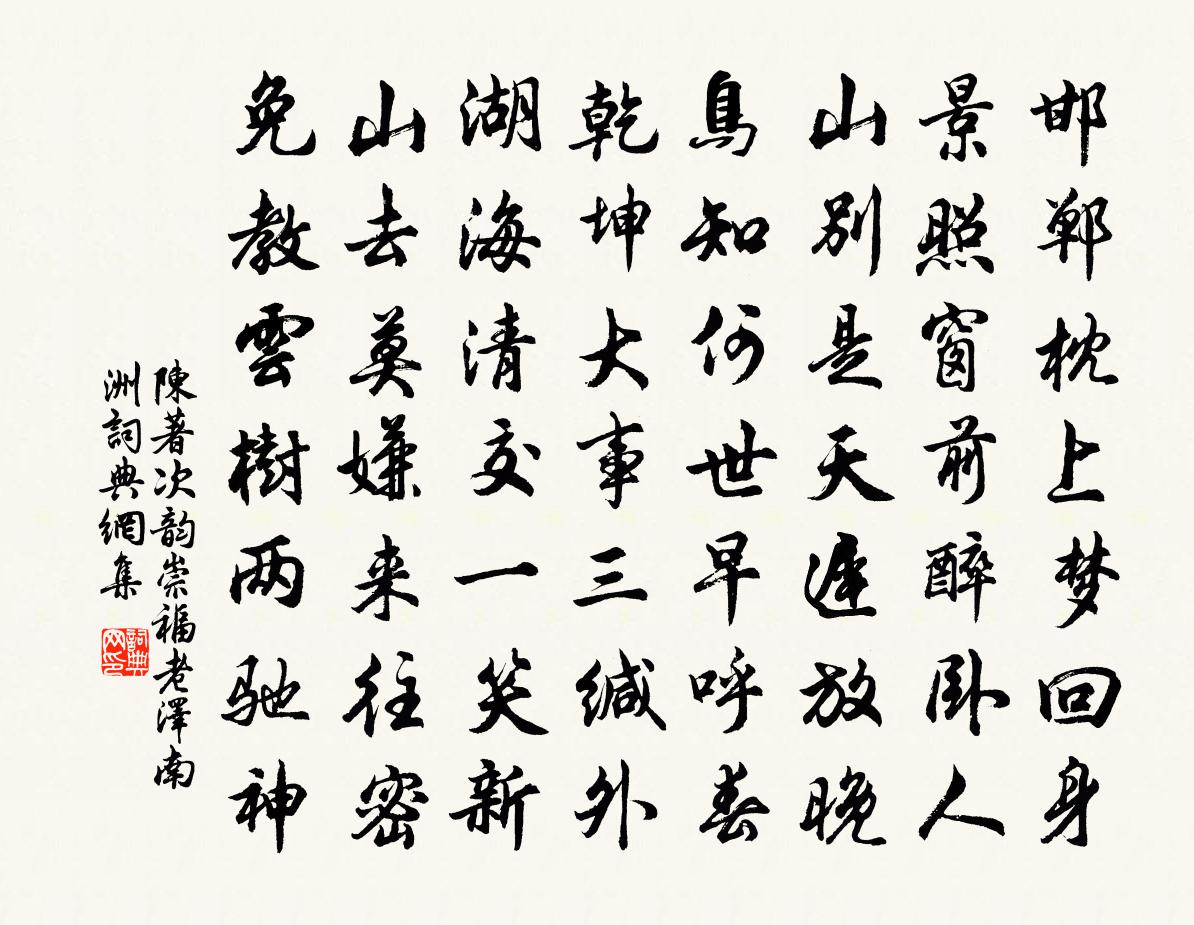 邯鄲枕上梦回身
景照窗前醉卧人
山别是天遅放晚
鳥知何世早呼春
乾坤大事三缄外
湖海清交一笑新
山去莫嫌来往密
免教雲樹两馳神
陳著次韵崇福老澤南
洲詞典網集
詞典网印